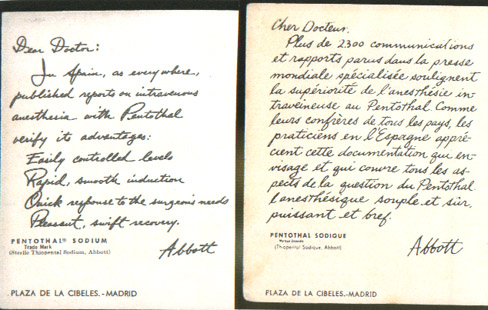 Dear Doctor:
In Spain, as everywhere,
published reports on intravenous
anesthesia with Pentothal
verify its advantages:
Easily controlled levels
Rapid, smooth induction
Quick response to the surgeons needs
Pleasant, swift recovery.
PENTOTHAL® SODIUM
Trade Mark
(Sterile Thiopental Sodium, Abbott)
Abbott
PLAZA DE LA CIBELES.-MADRID
Cher Docteur,
Plus de 2300 communications
et rapports parus dans la presse
mondiale spécialisée soulignent
la supériorité de l'anesthésie in-
traveineuse au Pentothal. Comme
leurs confrères de tous les pays, les
praticiens en l'Espagne appré-
cient cette documentation que en-
visage et qui couvre tous les as-
pects de la question du Pentothal
l'anesthésique souple et sûr,
puissant et bref.
PENTOTHAL SODIQUE
(Thiopental Sodique, Abbott)
Abbott
PLAZA DE LA CIBELES.-MADRID